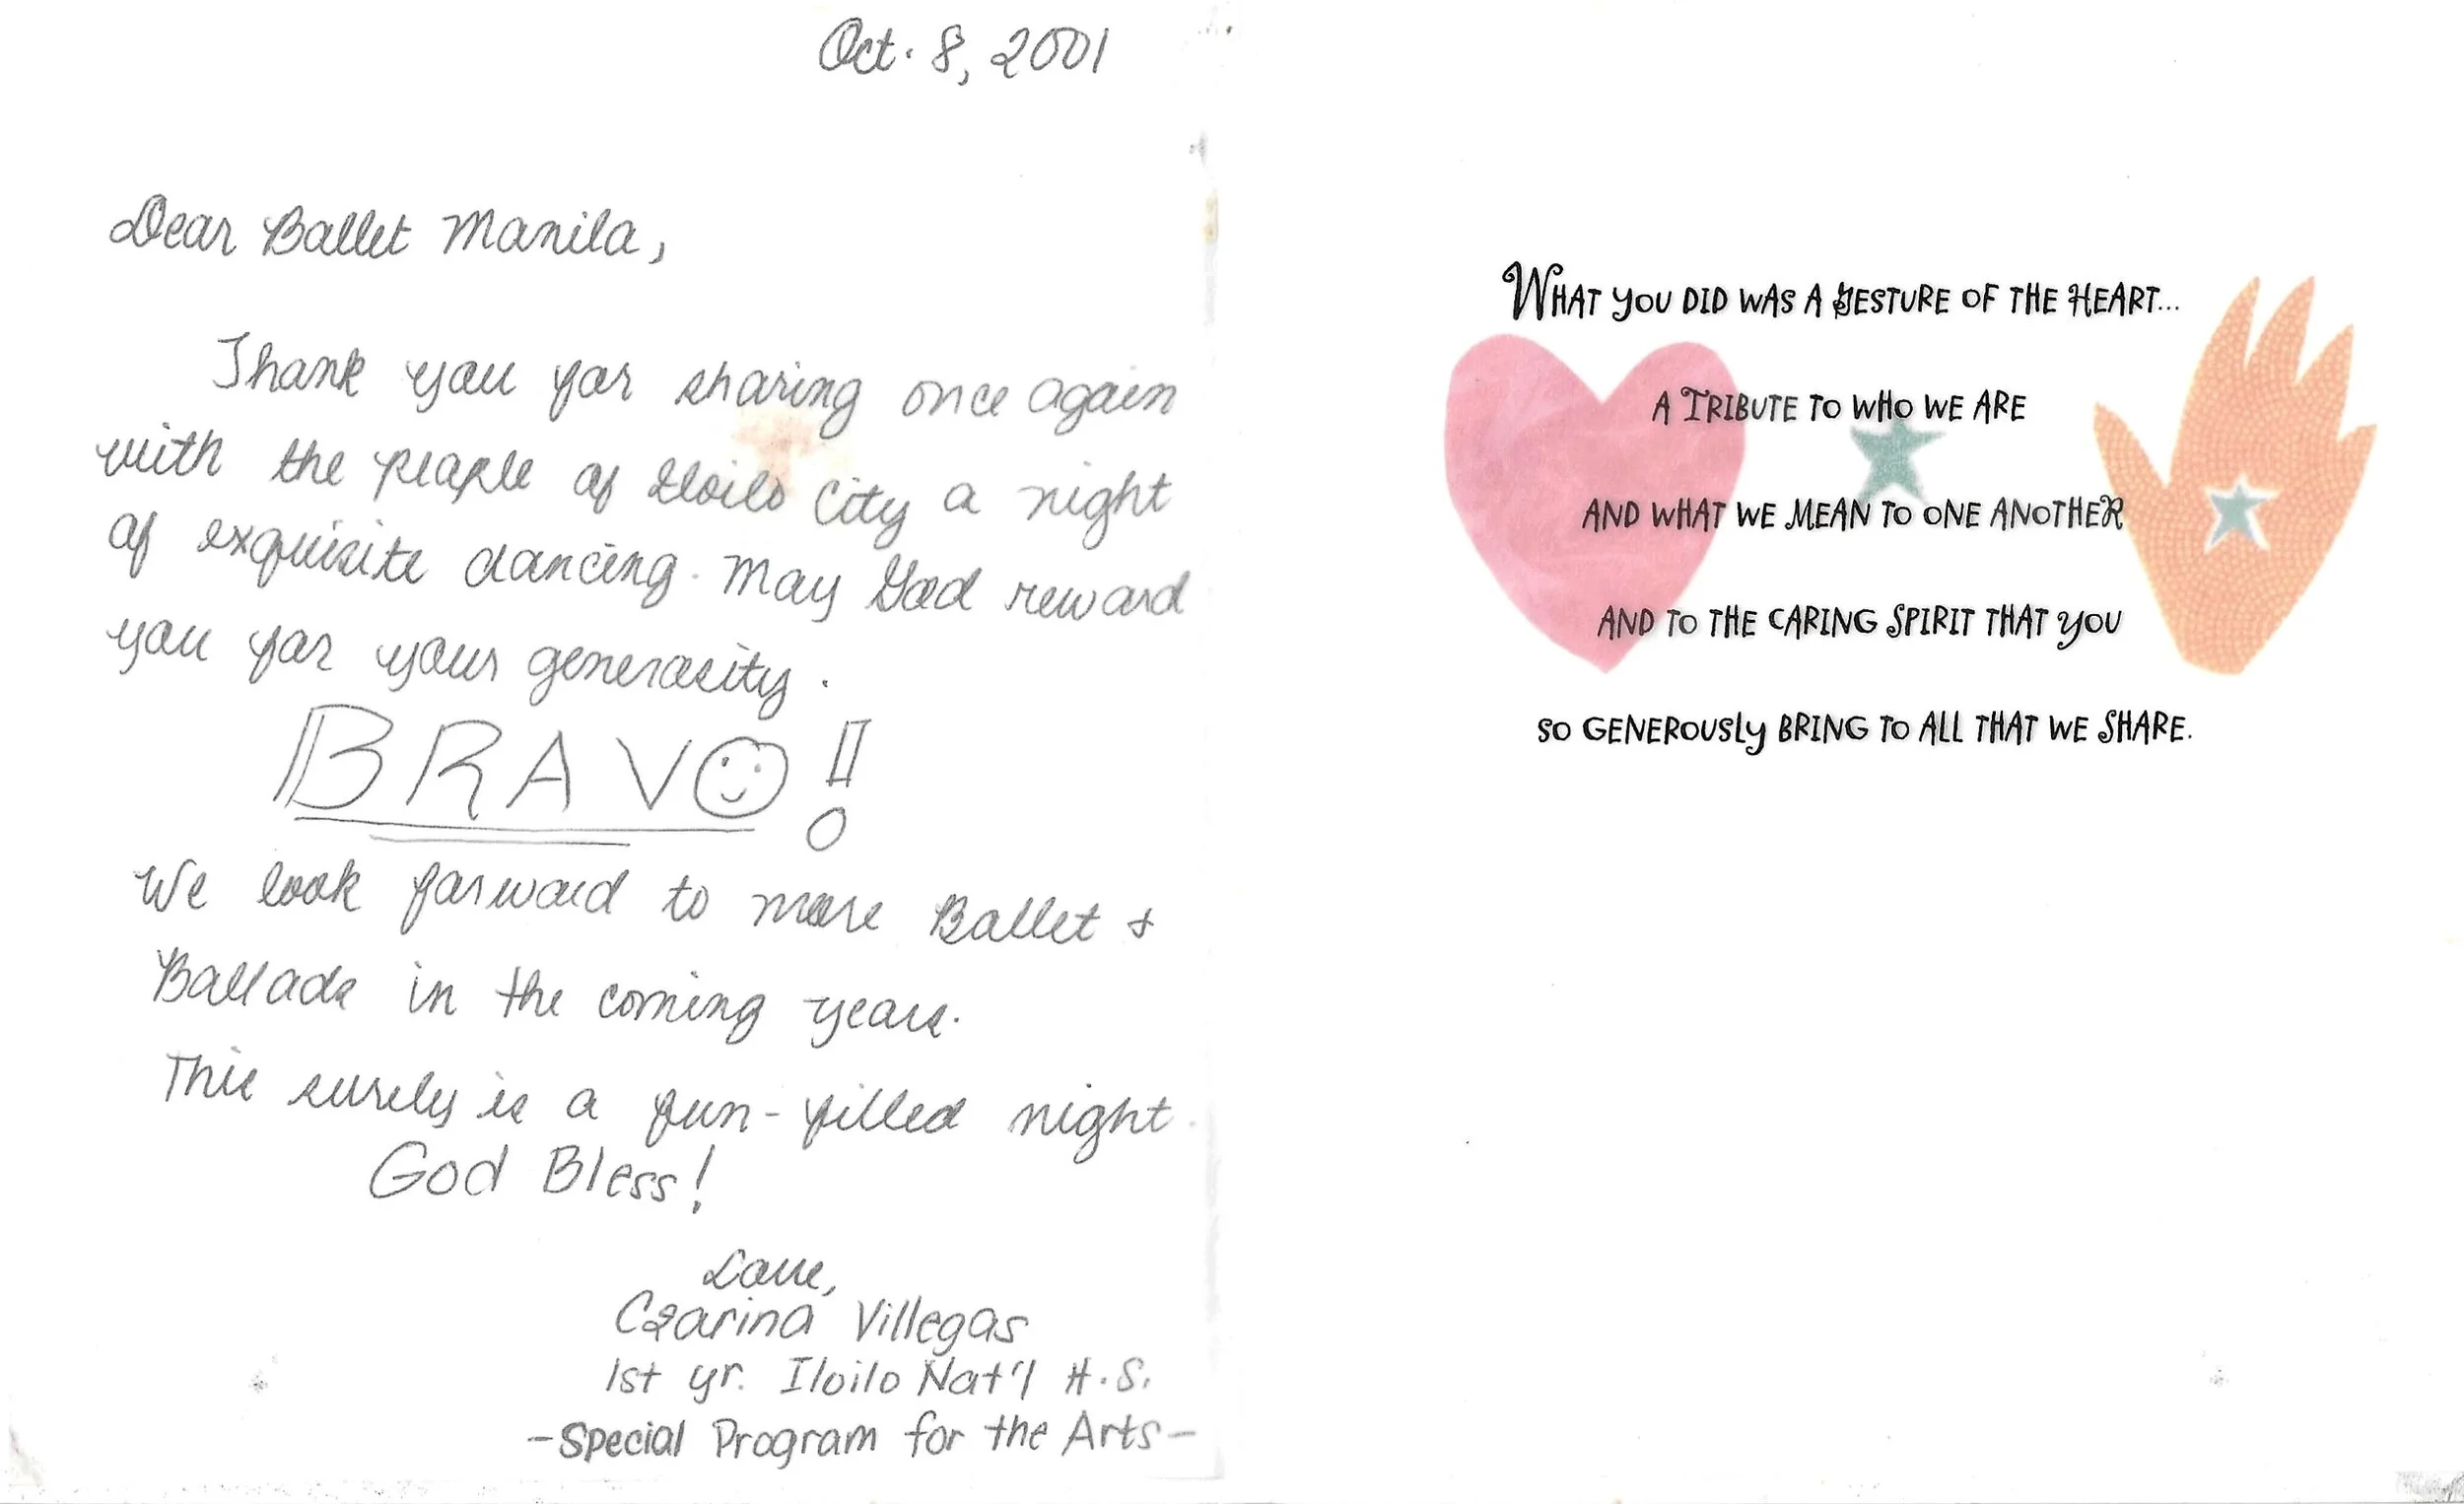 Oct. 8, 2001
Dear Ballet Manila,
Thank you for sharing once again
with the people of Iloilo City a night
of exquisite dancing. May God reward
you for your generosity.
BRAVO!!
We look forward to more Ballet &
Ballads in the coming years.
This surely is a fun-filled night.
God Bless!
Love,
Czarina Villegas
1st yr. Iloilo Nat'l H.S.
-Special Program for the Arts-
WHAT YOU DID WAS A GESTURE OF THE HEART...
A TRIBUTE TO WHO WE ARE
AND WHAT WE MEAN TO ONE ANOTHER
AND TO THE CARING SPIRIT THAT YOU
SO GENEROUSLY BRING TO ALL THAT WE SHARE.